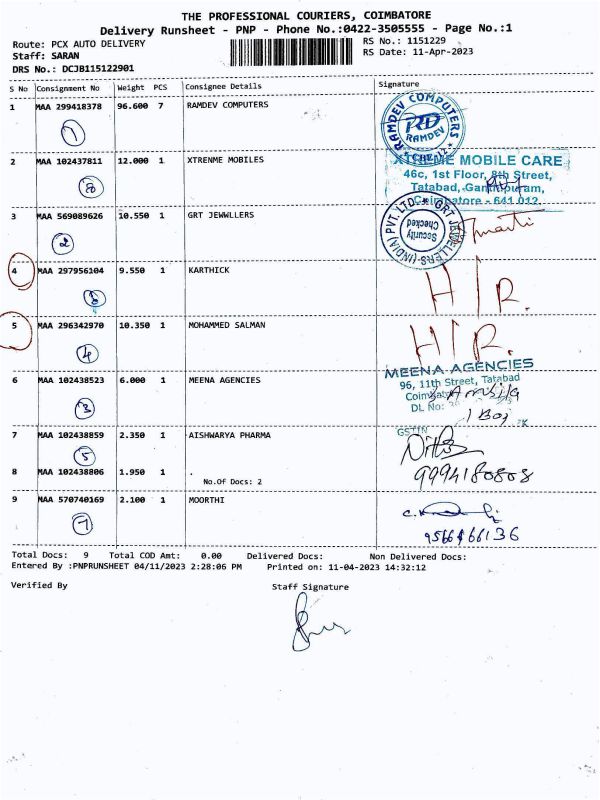 THE PROFESSIONAL COURIERS, COIMBATORE
Delivery Runsheet - PNP - Phone No.:0422-3505555 - Page No.:1
Route: PCX AUTO DELIVERY
RS No.: 1151229
Staff: SARAN
RS Date: 11-Apr-2023
DRS No.: DCJB115122901
S No Consignment No Weight PCS Consignee Details Signature
1 MAA 299418378 96.600 7 RAMDEV COMPUTERS
RAMDEV COMPUTERS
RD
RAMDEV
2 MAA 102437811 12.000 1 XTRENME MOBILES
8
XTREME MOBILE CARE
46c, 1st Floor, 8th Street,
Tatabad, Gandhipuram,
Coimbatore - 641 012.
3 MAA 569089626 10.550 1 GRT JEWWLLERS
2
GRT JEWELLERS (INDIA) PVT. LTD.
Security
Checked
4 MAA 297956104 9.550 1 KARTHICK
6
H/R.
5 MAA 296342970 10.350 1 MOHAMMED SALMAN
4
H/R.
6 MAA 102438523 6.000 1 MEENA AGENCIES
3
MEENA AGENCIES
96, 11th Street, Tatabad
DL No:
1 Box
GSTIN
7 MAA 102438859 2.350 1 AISHWARYA PHARMA
5
8 MAA 102438806 1.950 1 .
No.Of Docs: 2
9994180808
9 MAA 570740169 2.100 1 MOORTHI
9566466136
Total Docs: 9 Total COD Amt: 0.00 Delivered Docs: Non Delivered Docs:
Entered By :PNPRUNSHEET 04/11/2023 2:28:06 PM Printed on: 11-04-2023 14:32:12
Verified By Staff Signature